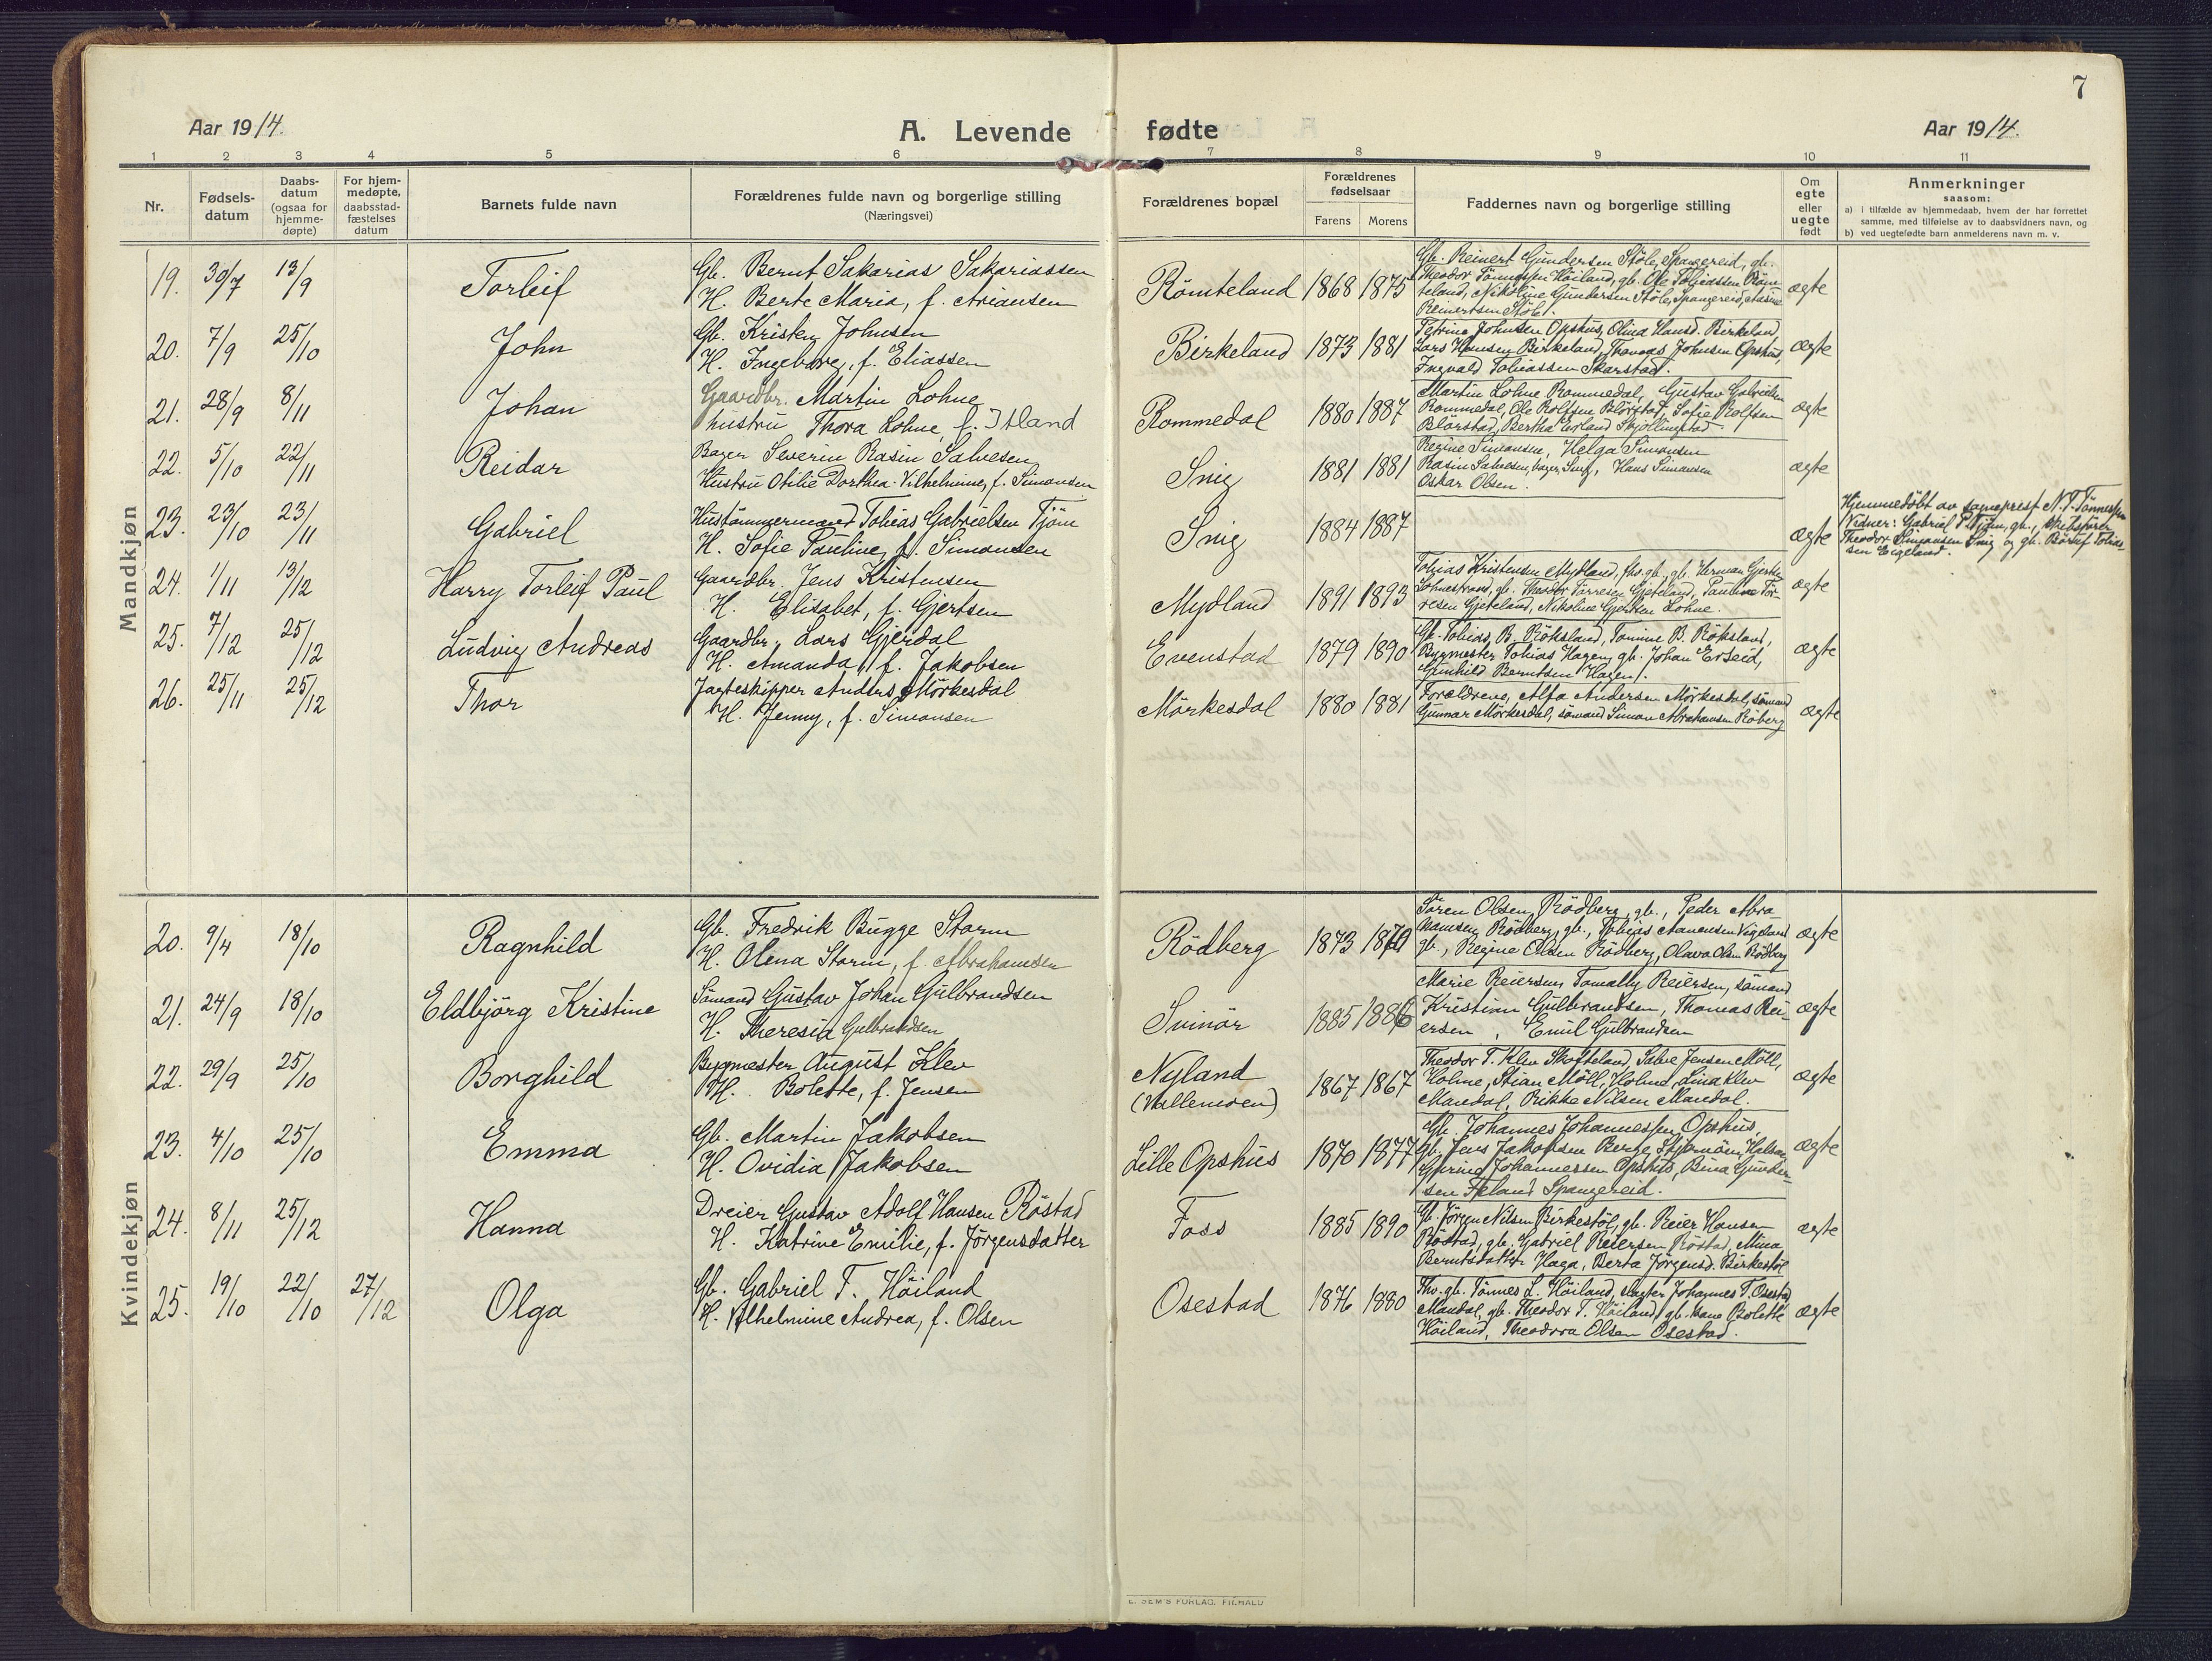 7
Aar 1914.
A. Levende fødte
Aar 1914.
1 2 3 4 5 6 7 8 9 10 11
Nr.
Fødsels-
datum
Daabs-
datum
(ogsaa for
hjemme-
døpte)
For hjem-
medøpte,
daabsstad-
fæstelses
datum
Barnets fulde navn
Forældrenes fulde navn og borgerlige stilling
(Næringsvei)
Forældrenes bopæl
Forældrenes
fødselsaar
Farens Morens
Faddernes navn og borgerlige stilling
Om
egte
eller
uegte
født
Anmerkninger
saasom:
a) i tilfælde av hjemmedaab, hvem der har forrettet
samme, med tilføielse av to daabsvidners navn, og
b) ved uegtefødte barn anmelderens navn m. v.
Mandkjøn
19. 30/7 13/9 Torleif
Gb. Bernt Sakarias Sakariassen
H. Berte Maria, f. Ariansen
Römteland 1868 1875
Gb. Reinert Gundersen Stöle, Spangereid, gb.
Theodor Tönnessen Höiland, gb. Ole Tobiassen Röm-
teland, Nikoline Gundersen Stöle, Spangereid,
Reinertsen Stöle.
ægte
20. 7/9 25/10 John
Gb. Kristen Johnsen
H. Ingeborg, f. Eliassen
Birkeland 1873 1881
Petrine Johnsen Opshus, Olina Hansd. Birkeland,
Lars Hansen Birkeland, Thomas Johnsen Opshus,
Ingvald Tobiassen Skarstad.
ægte
21. 28/9 8/11 Johan
Gaardbr. Martin Lohne
hustru Thora Lohne, f. Itland
Rommedal 1880 1887
Martin Lohne Rommedal, Gustav Gabrielsen
Rommedal, Ole Rolfsen Blörstad, Sofie Rolfsen
Blörstad, Bertha Erland
ægte
22. 5/10 22/11 Reidar
Bager Severin Rasin Salvesen
Hustru Otilie Dorthea Vilhelmine, f. Simonsen
Snig 1881 1881
Regine Simonsen, Helga Simonsen
Rasin Salvesen, bager, Snig, Hans Simonsen
Oskar Olsen.
ægte
23. 23/10 23/11 Gabriel
Hustömmermand Tobias Gabrielsen Tjöm
H. Sofie Pauline, f. Simonsen
Snig 1884 1887
ægte
Hjemmedöbt av sogneprest N. T. Tönnessen
Vidner: Gabriel T. Tjöm, gb., skibsförer
Theodor Simonsen Snig og gb. Böruf Tobias-
sen Eigeland.
24. 1/11 13/12 Harry Torleif Paul
Gaardbr. Jens Kristensen
H. Elisabet, f. Gjertsen
Mydland 1891 1893
Tobias Kristensen Mydland, fhv. gb., gb. Herman Gjertsen
Lohnestrand, gb. Theodor Törresen Gjeteland, Pauline Tör-
resen Gjeteland, Nikoline Gjertsen Lohne.
ægte
25. 7/12 25/12 Ludvig Andreas
Gaardbr. Lars Gjerdal
H. Amanda, f. Jakobsen
Evenstad 1879 1890
Gb. Tobias B. Röksland, Tomine B. Röksland,
Bygmester Tobias Hagen, gb. Johan Erseid,
Gunhild Berntsen Hagen.
ægte
26. 25/11 25/12 Thor
Jagteskipper Anders Mörkesdal
H. Jenny, f. Simonsen
Mörkesdal 1880 1881
Forældrene, Alfa Andersen Mörkesdal, sömand
Gunnar Mörkesdal, sömand Simon Abrahamsen Röberg
ægte
Kvindekjøn
20. 9/4 18/10 Ragnhild
Gb. Fredrik Bugge Storm
H. Olena Storm, f. Abrahamsen
Rödberg 1873
Sören Olsen Rödberg, gb., Peder Abra-
hamsen Rödberg, gb., Tobias Aanensen Vigeland
gb., Regine Olsen Rödberg, Olava Olsen Rödberg
ægte
21. 24/9 18/10 Eldbjörg Kristine
Sömand Gustav Johan Gulbrandsen
H. Theresia Gulbrandsen
Svinör 1885 1886
Marie Reiersen, Tomally Reiersen, sömand
Kristian Gulbrandsen, Thomas Rei-
ersen, Emil Gulbrandsen
ægte
22. 29/9 25/10 Borghild
Bygmester August Klev
H. Bolette, f. Jensen
Nyland
(Vallemoen) 1867 1867
Theodor T. Klev Skofteland, Salve Jensen Möll,
Holme, Stian Möll, Holme, Lina Klev
Mandal, Rikke Nilsen Mandal.
ægte
23. 4/10 25/10 Emma
Gb. Martin Jakobsen
H. Ovidia Jakobsen
Lille Opshus 1870 1877
Gb. Johannes Johannessen Opshus,
gb. Jens Jakobsen Berge, Halsaa
Gurine Johannessen Opshus, Bina Gunder-
sen Spangereid.
ægte
24. 8/11 25/12 Hanna
Dreier Gustav Adolf Hansen Röstad
H. Katrine Emilie, f. Jörgensdatter
Foss 1885 1890
Gb. Jörgen Nilsen Birkestöl, gb. Reier Hansen
Röstad, gb. Gabriel Reiersen Röstad, Mina
Berntsdatter Haga, Berta Jörgensd. Birkestöl
ægte
25. 19/10 22/10 27/12 Olga
Gb. Gabriel T. Höiland
H. Vilhelmine Andrea, f. Olsen
Osestad 1876 1880
Fhv. gb. Tönnes L. Höiland, slagter Johannes T. Osestad
Mandal, gb. Theodor T. Höiland, gb. kone Bolette
Höiland, Theodora Olsen Osestad.
ægte
E. SEM'S FORLAG, F.HALD